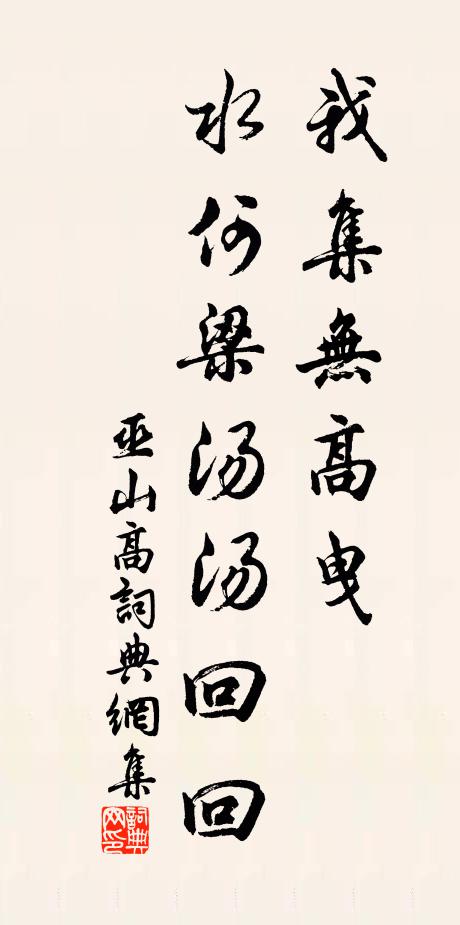 我集無高曳
水何梁湯湯回回
巫山高詞典網集
詞典網印